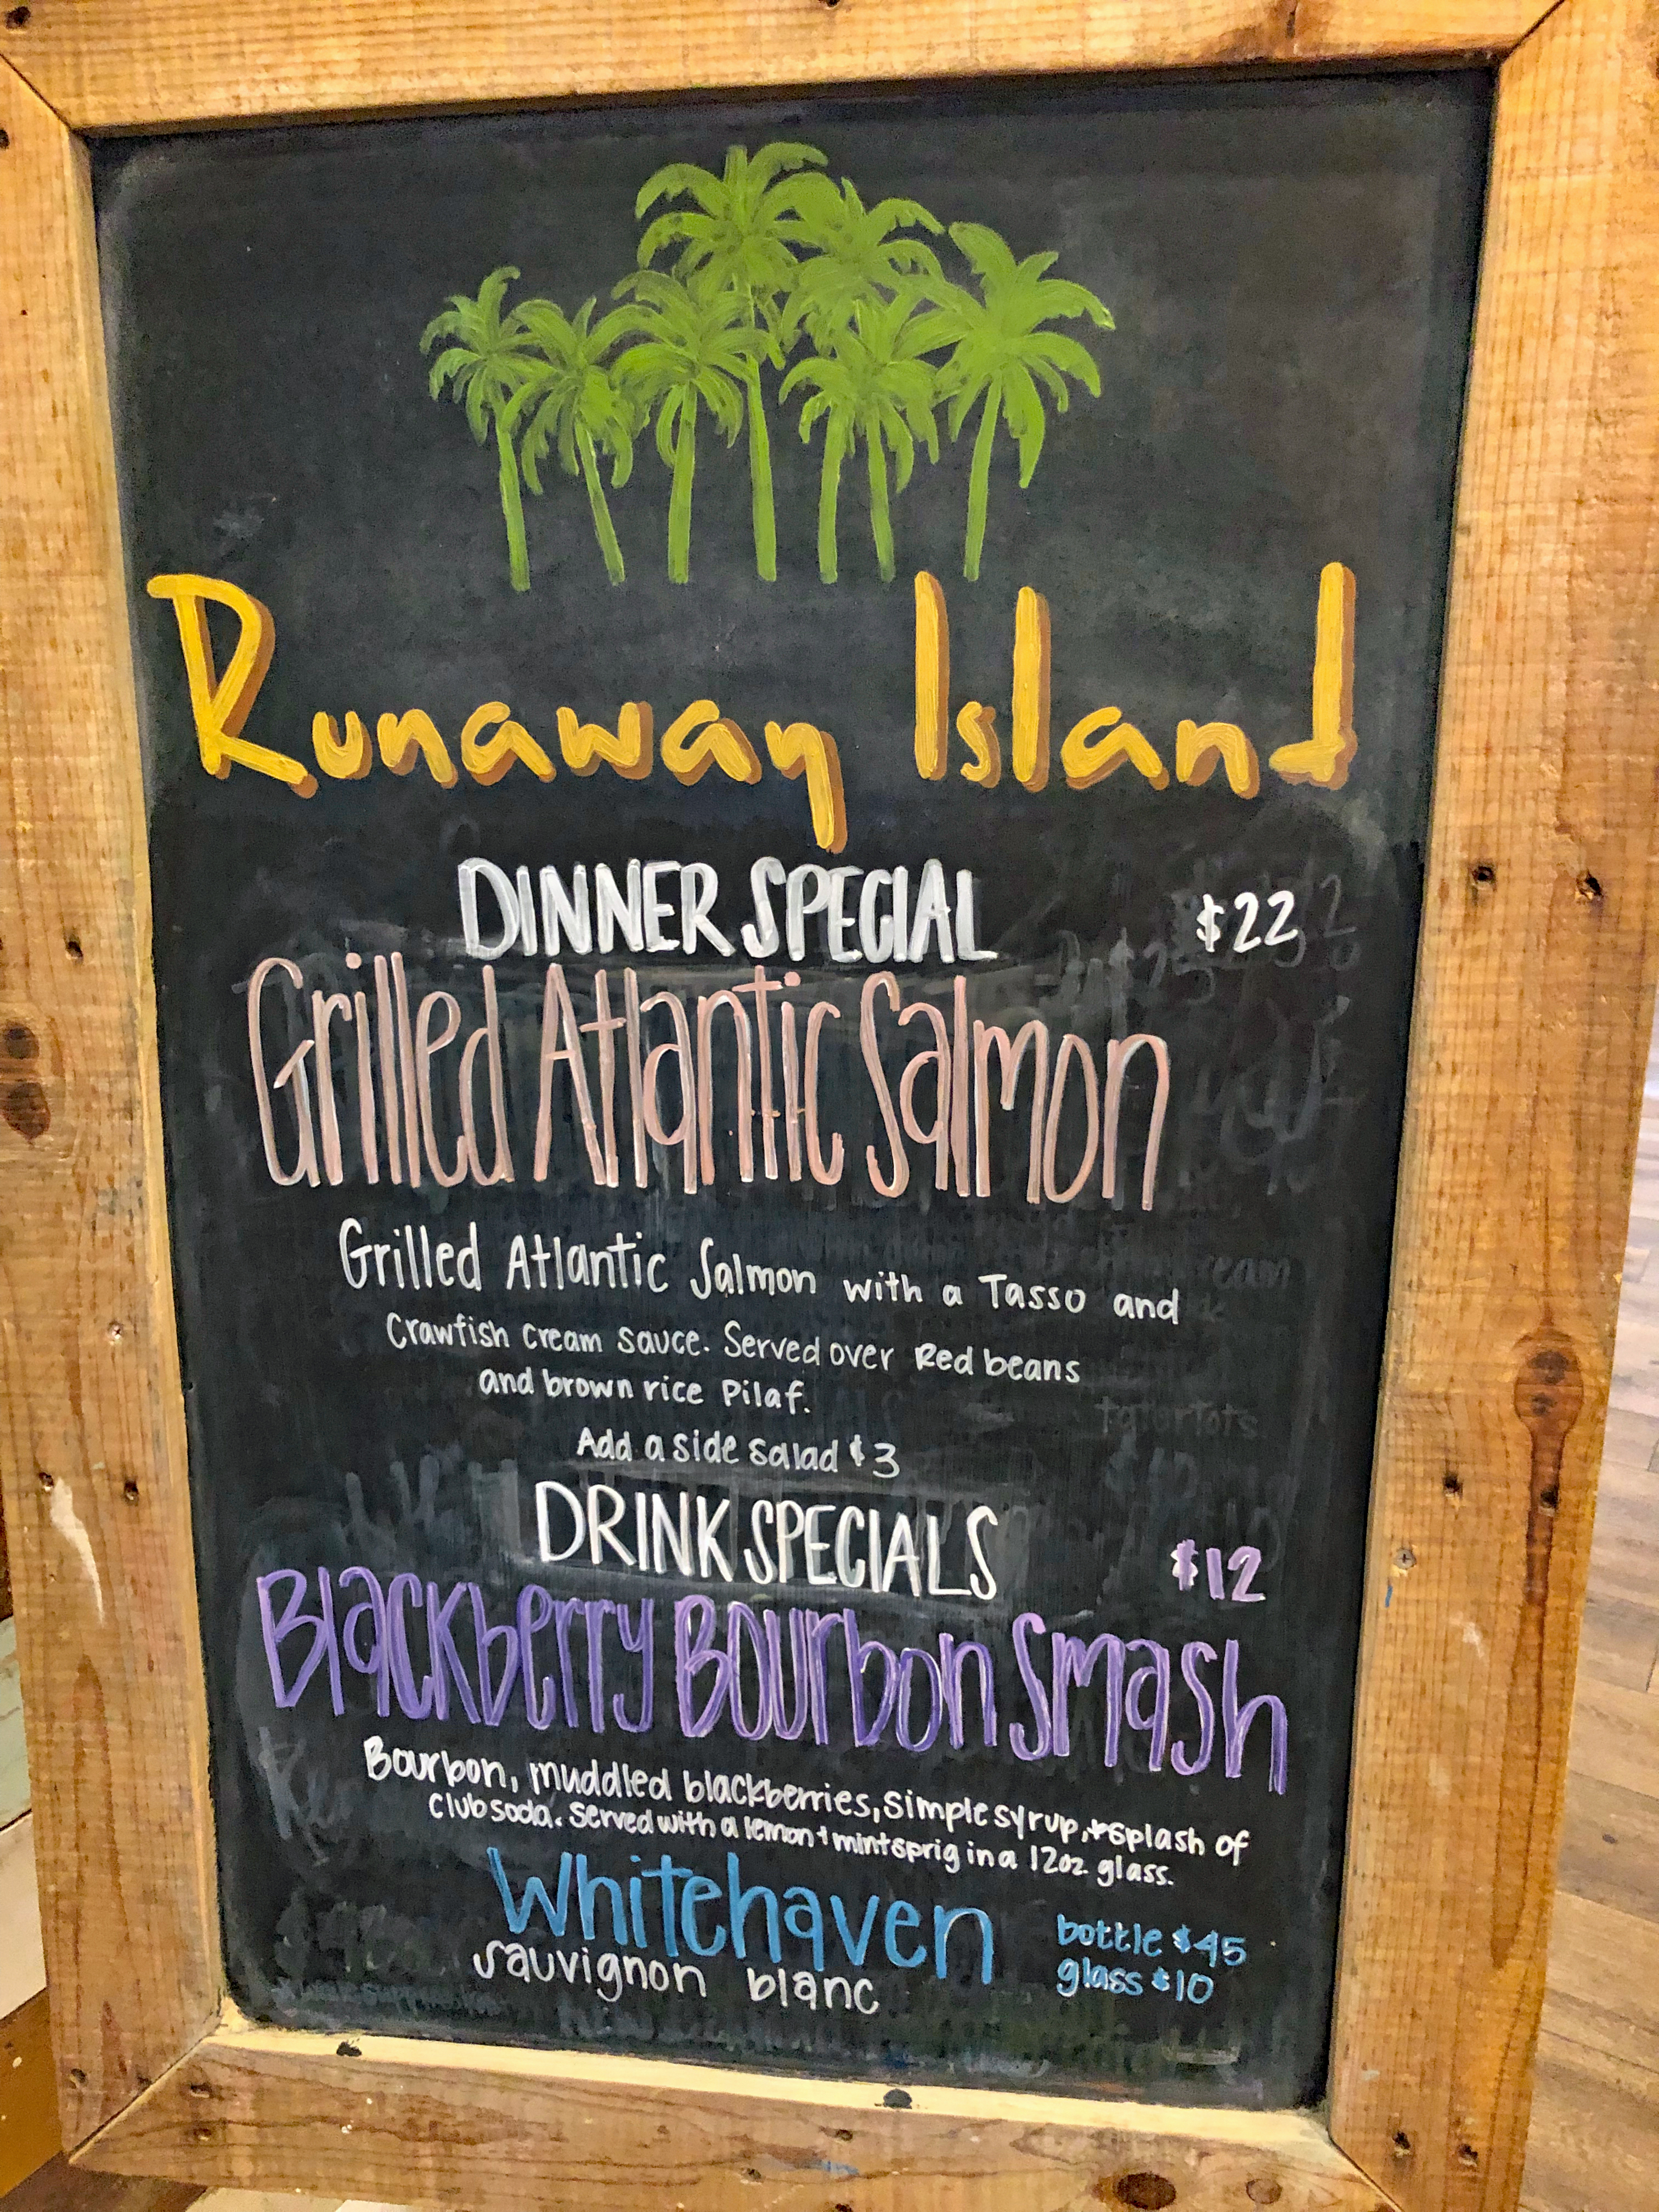 Runaway Island
DINNER SPECIAL $22
Grilled Atlantic Salmon
Grilled Atlantic Salmon with a Tasso and
Crawfish cream sauce. Served over Red beans
and brown rice Pilaf.
Add a side salad $3
DRINK SPECIALS $12
Blackberry Bourbon Smash
Bourbon, muddled blackberries, simple syrup, + splash of
Club soda. Served with a lemon + mint sprig in a 12oz. glass.
Whitehaven bottle $45
sauvignon blanc glass $10